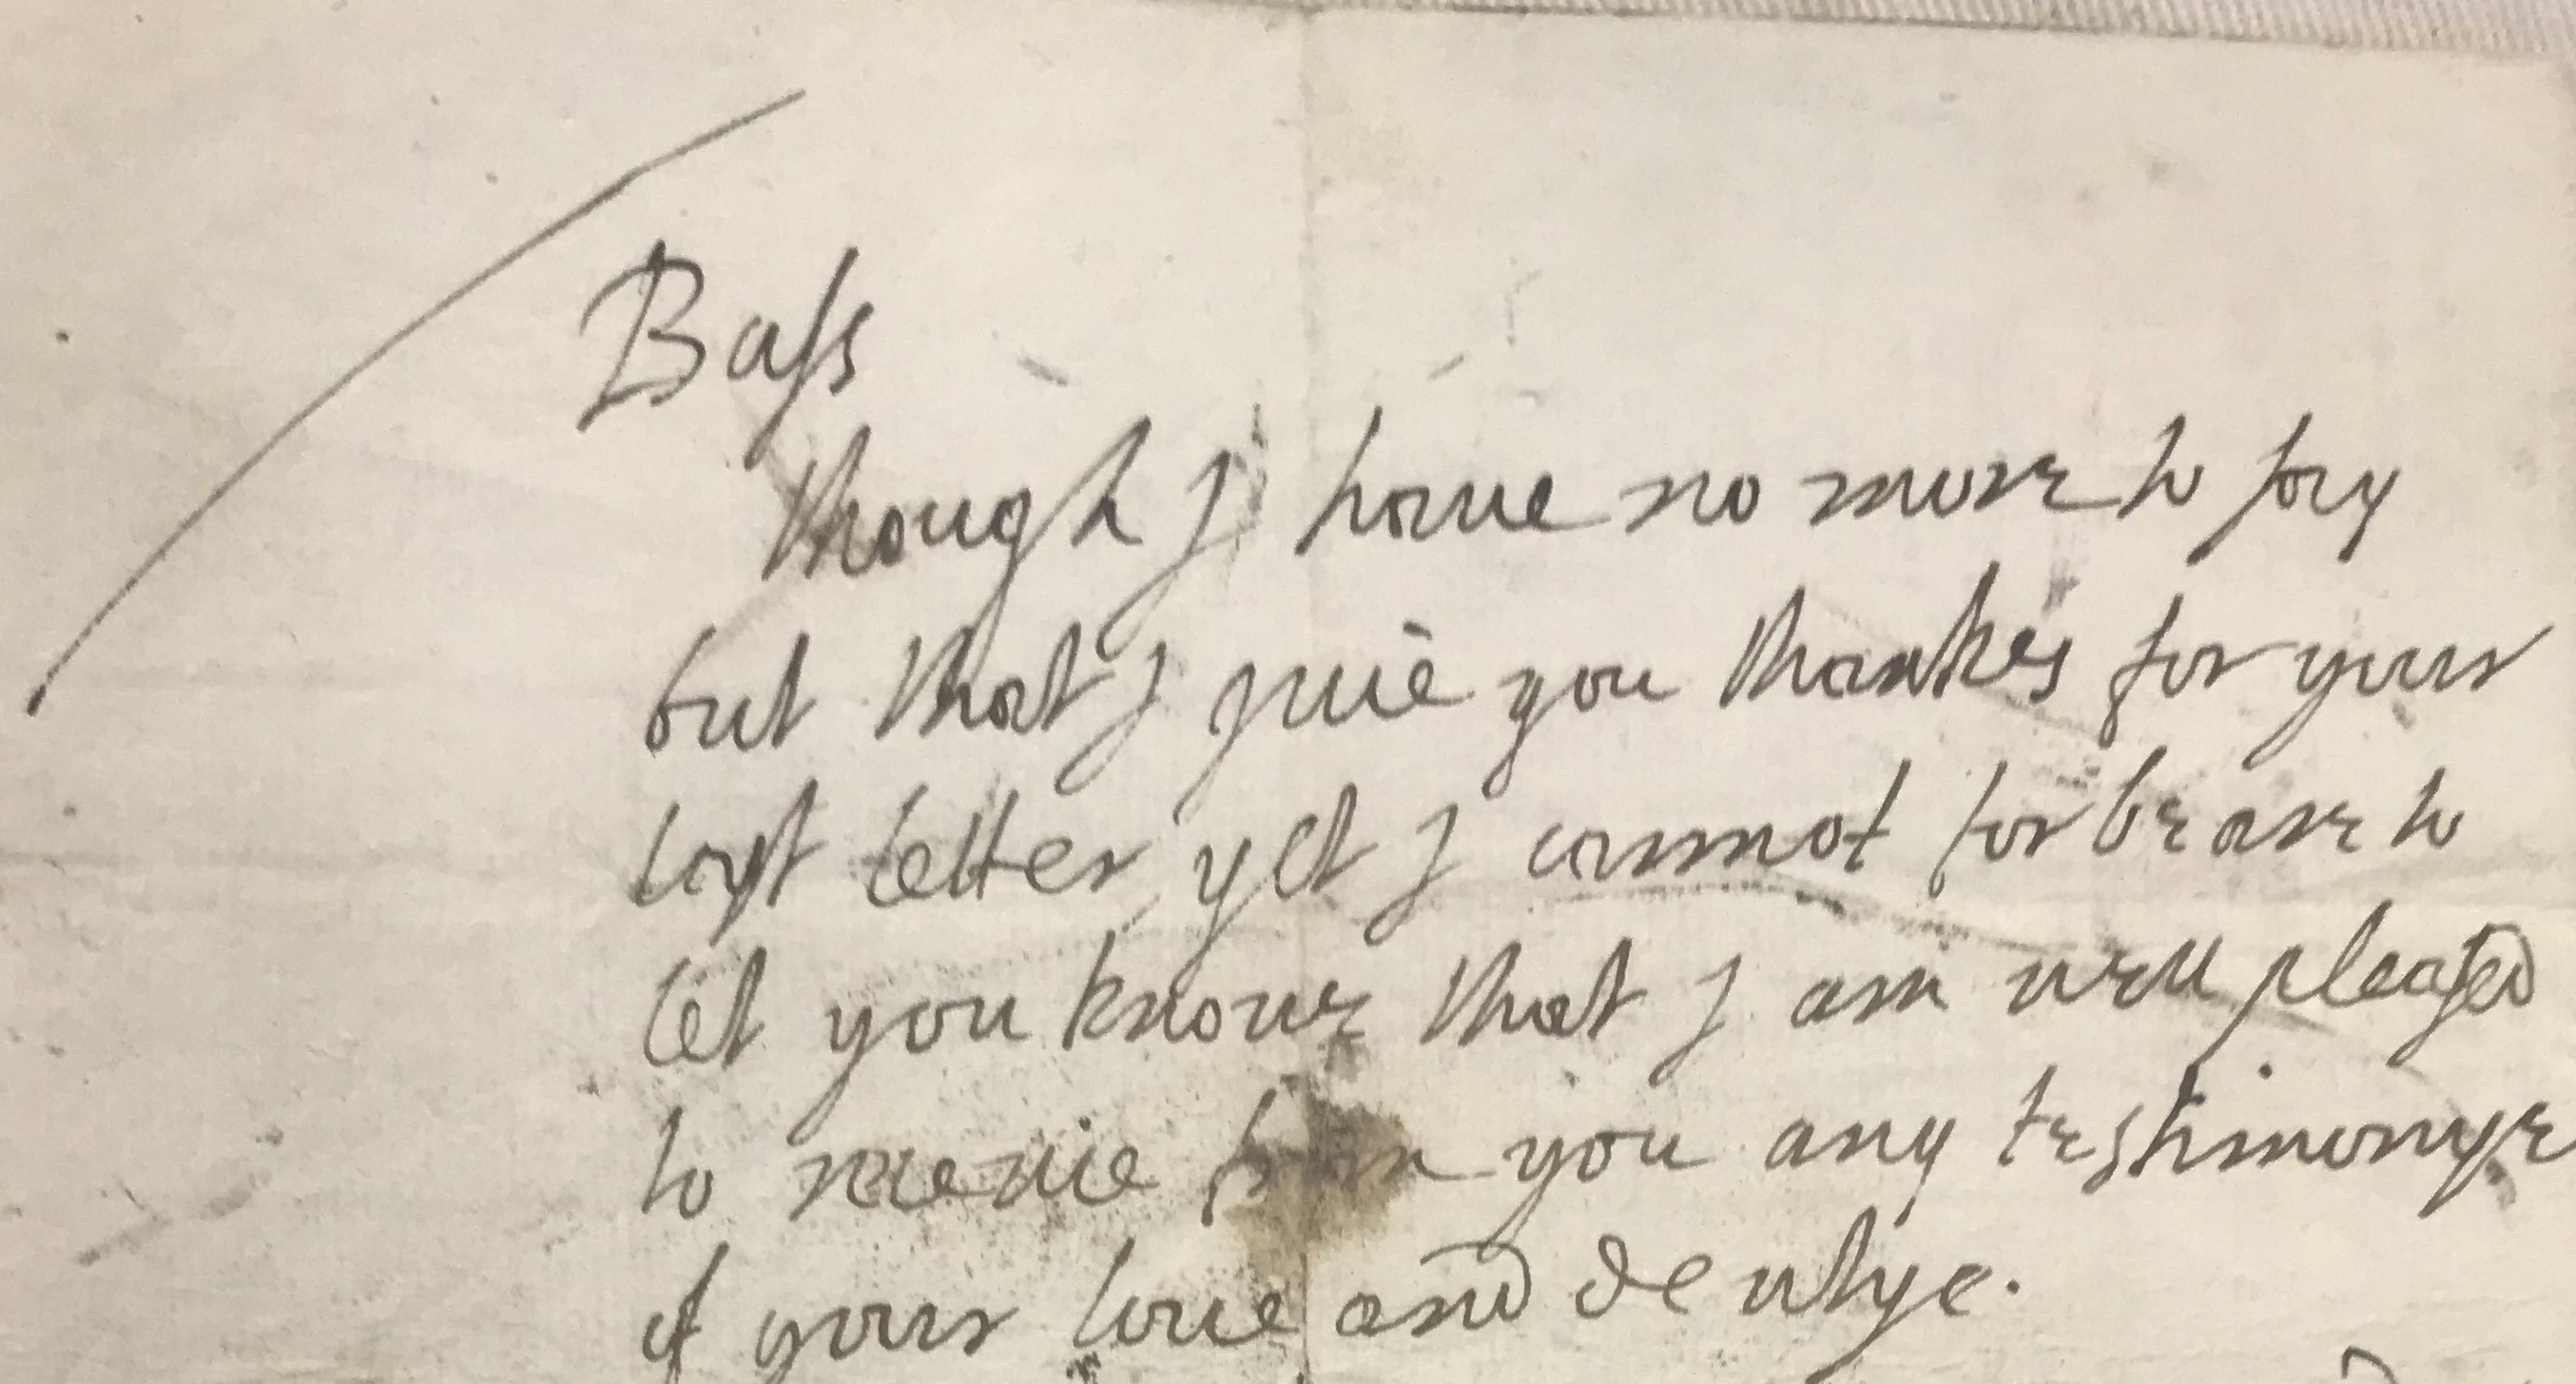 Bass
though I haue no more to say
but that I giue you thankes for your
last letter, yet I cannot forbeare to
let you knowe that I am well pleased
to receaue from you any testimonye
of your loue and dewtye.